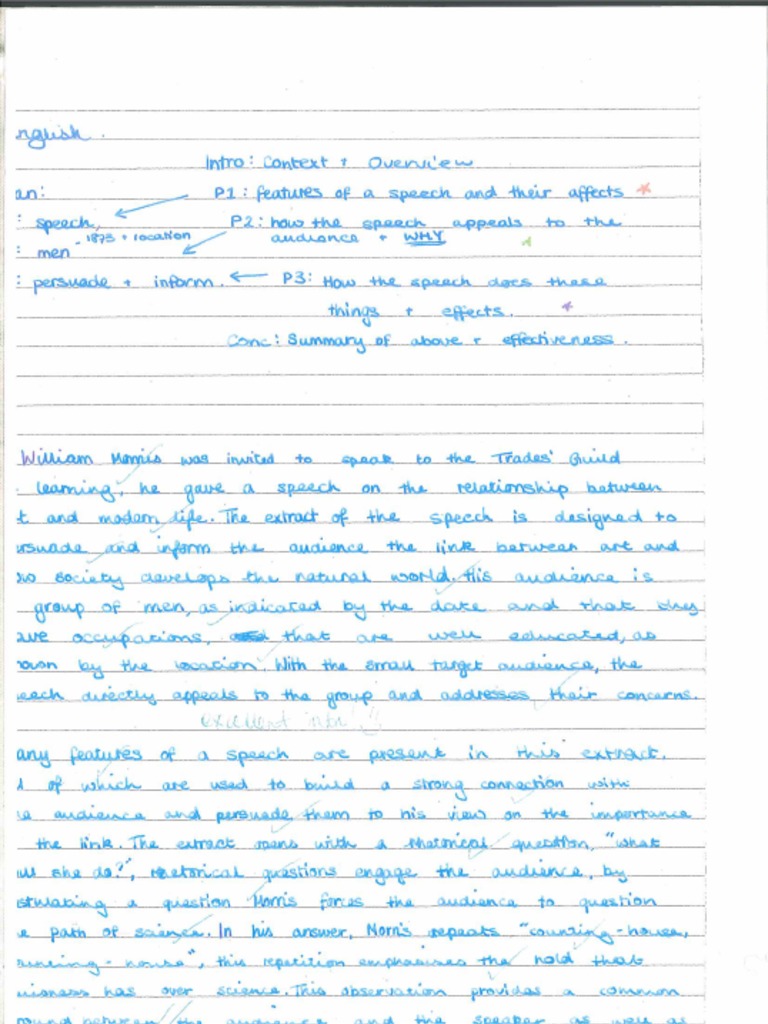 nglish.
Intro: Context + Overview
an:
P1: features of a speech and their affects *
: speech,
P2: how the speech appeals to the
- 1873 + location
audience + WHY
: men
: persuade + inform.
P3: How the speech does these
things + effects. *
Conc: Summary of above + effectiveness.
William Morris was invited to speak to the Trades' Guild
learning, he gave a speech on the relationship between
t and modern life. The extract of the speech is designed to
rsuade and inform the audience the link between art and
ow society develops the natural world. His audience is
group of men, as indicated by the date and that they
ave occupations, that are well educated, as
hown by the location. With the small target audience, the
eech directly appeals to the group and addresses their concerns.
excellent intro!
any features of a speech are present in this extract.
l of which are used to build a strong connection with
e audience and persuade them to his view on the importance
the link. The extract opens with a rhetorical question, "what
ll she do?", rhetorical questions engage the audience, by
stulating a question Morris forces the audience to question
e path of science. In his answer, Morris repeats "counting-house,
ounting-house", this repetition emphasises the hold that
usiness has over science. This observation provides a common
round between the audience and the speaker as well as